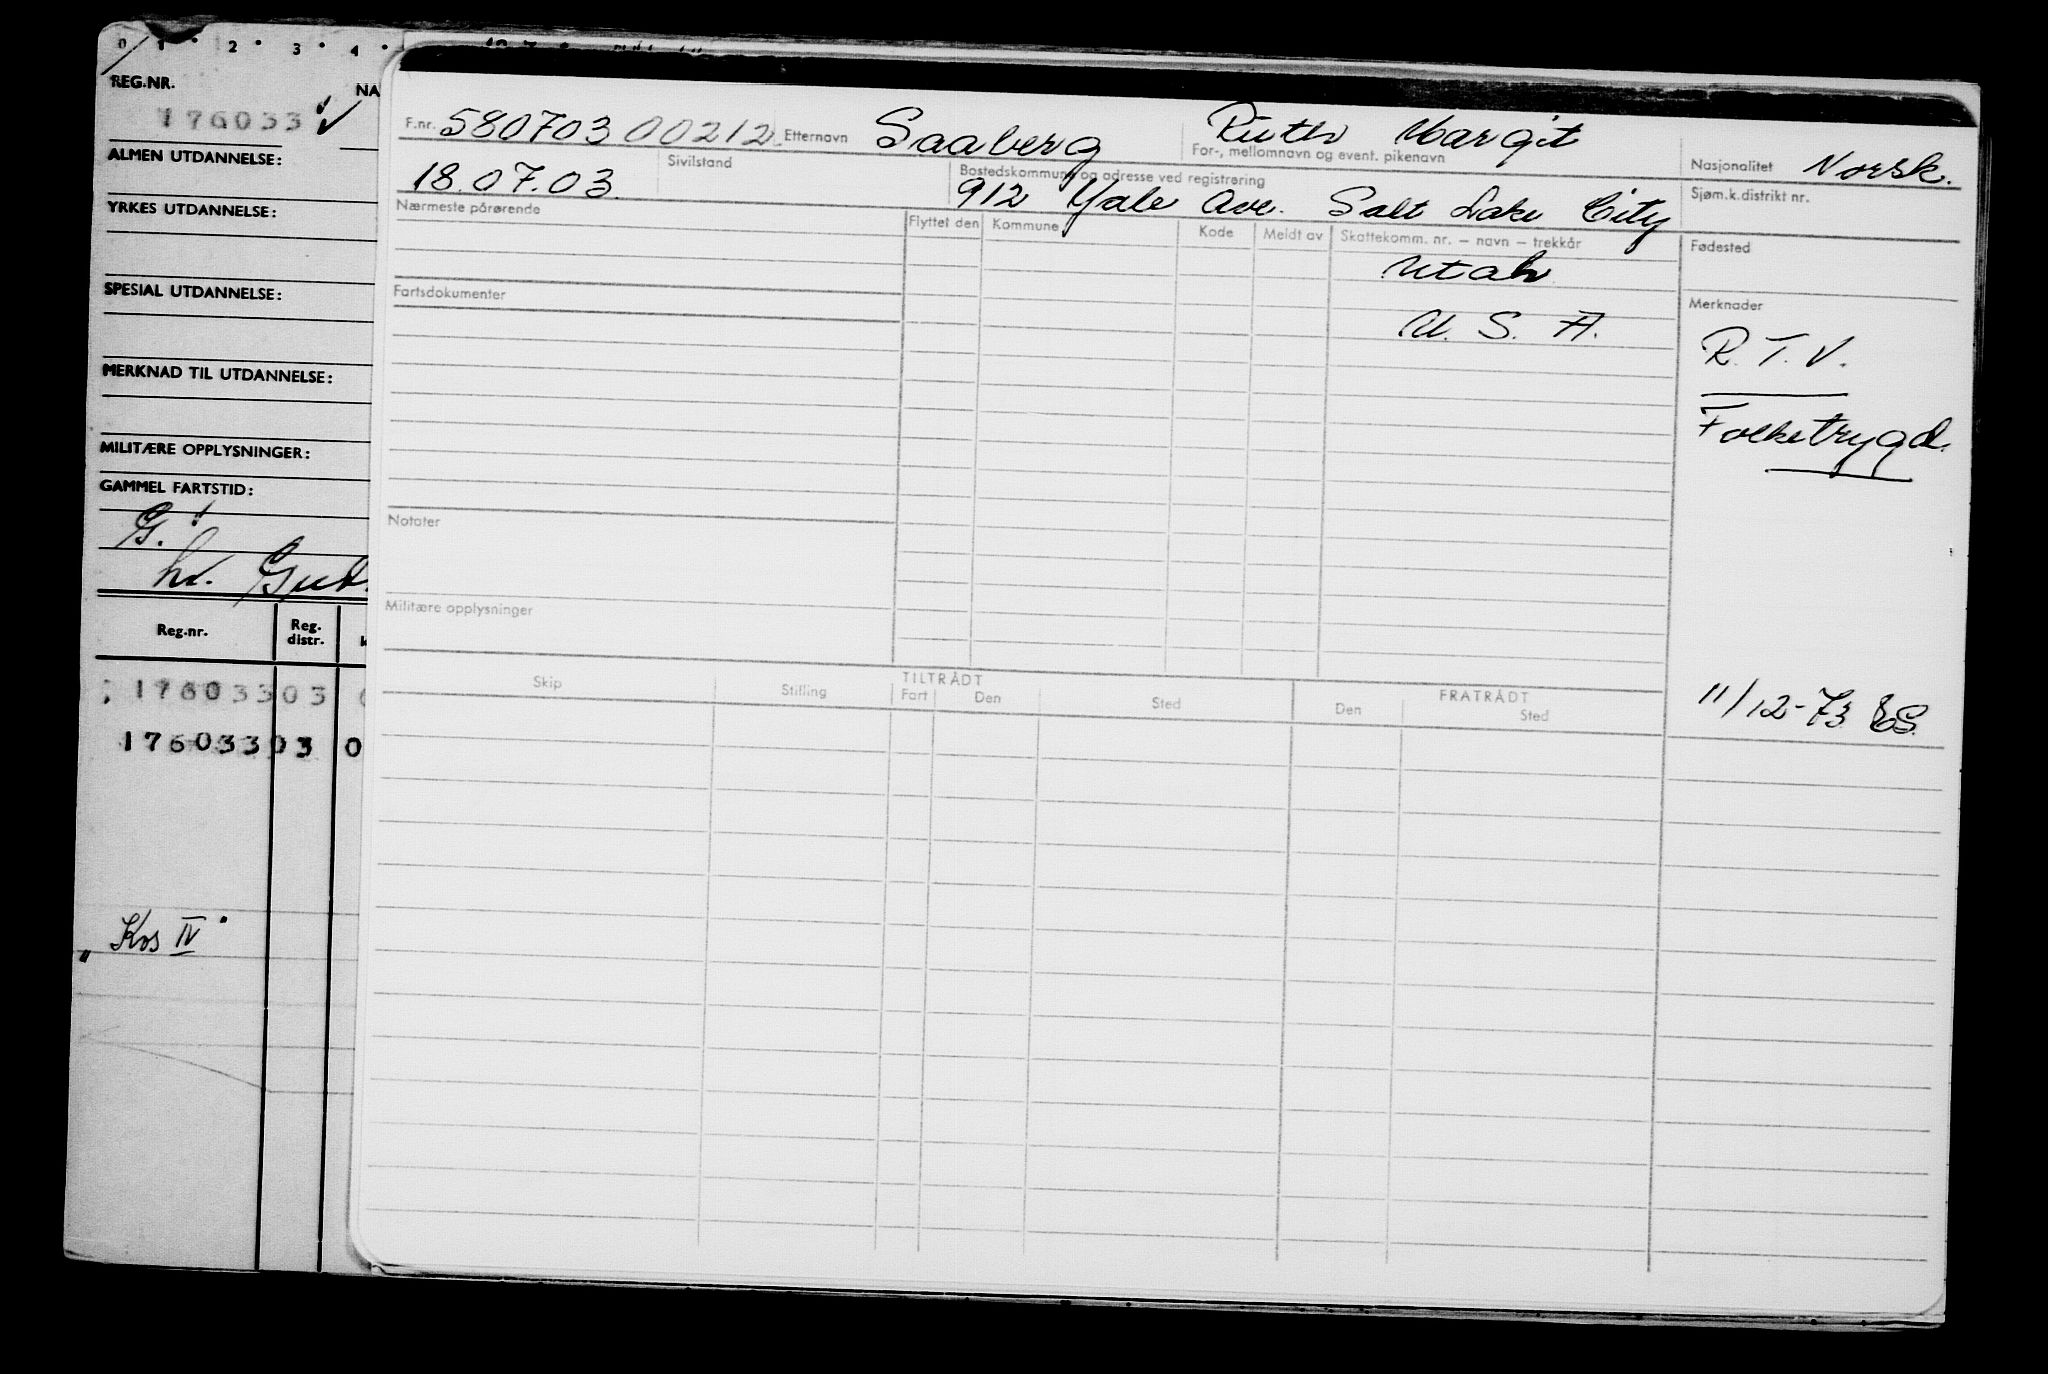 0 1 2 3 4
REG.NR.
NA
176033
ALMEN UTDANNELSE:
YRKES UTDANNELSE:
SPESIAL UTDANNELSE:
MERKNAD TIL UTDANNELSE:
MILITÆRE OPPLYSNINGER:
GAMMEL FARTSTID:
G.
Reg.nr. Reg. distr.
17603303
17603303 0
" Kos IV "
F.nr. 580703 00212 Etternavn Saaberg Ruth Margit
For-, mellomnavn og event. pikenavn
Nasjonalitet Norsk.
18.07.03. Sivilstand
Bostedskommune og adresse ved registrering
912 Yale Ave. Salt Lake City
Sjøm.k.distrikt nr.
Nærmeste pårørende Flyttet den Kommune Kode Meldt av Skattekomm. nr. – navn – trekkår Fødested
Utah
U. S. A.
Fartsdokumenter
Merknader
R. T. V.
Folketrygd.
Notater
Militære opplysninger
11/12-73
TILTRÅDT FRATRÅDT
Skip Stilling Fart Den Sted Den Sted